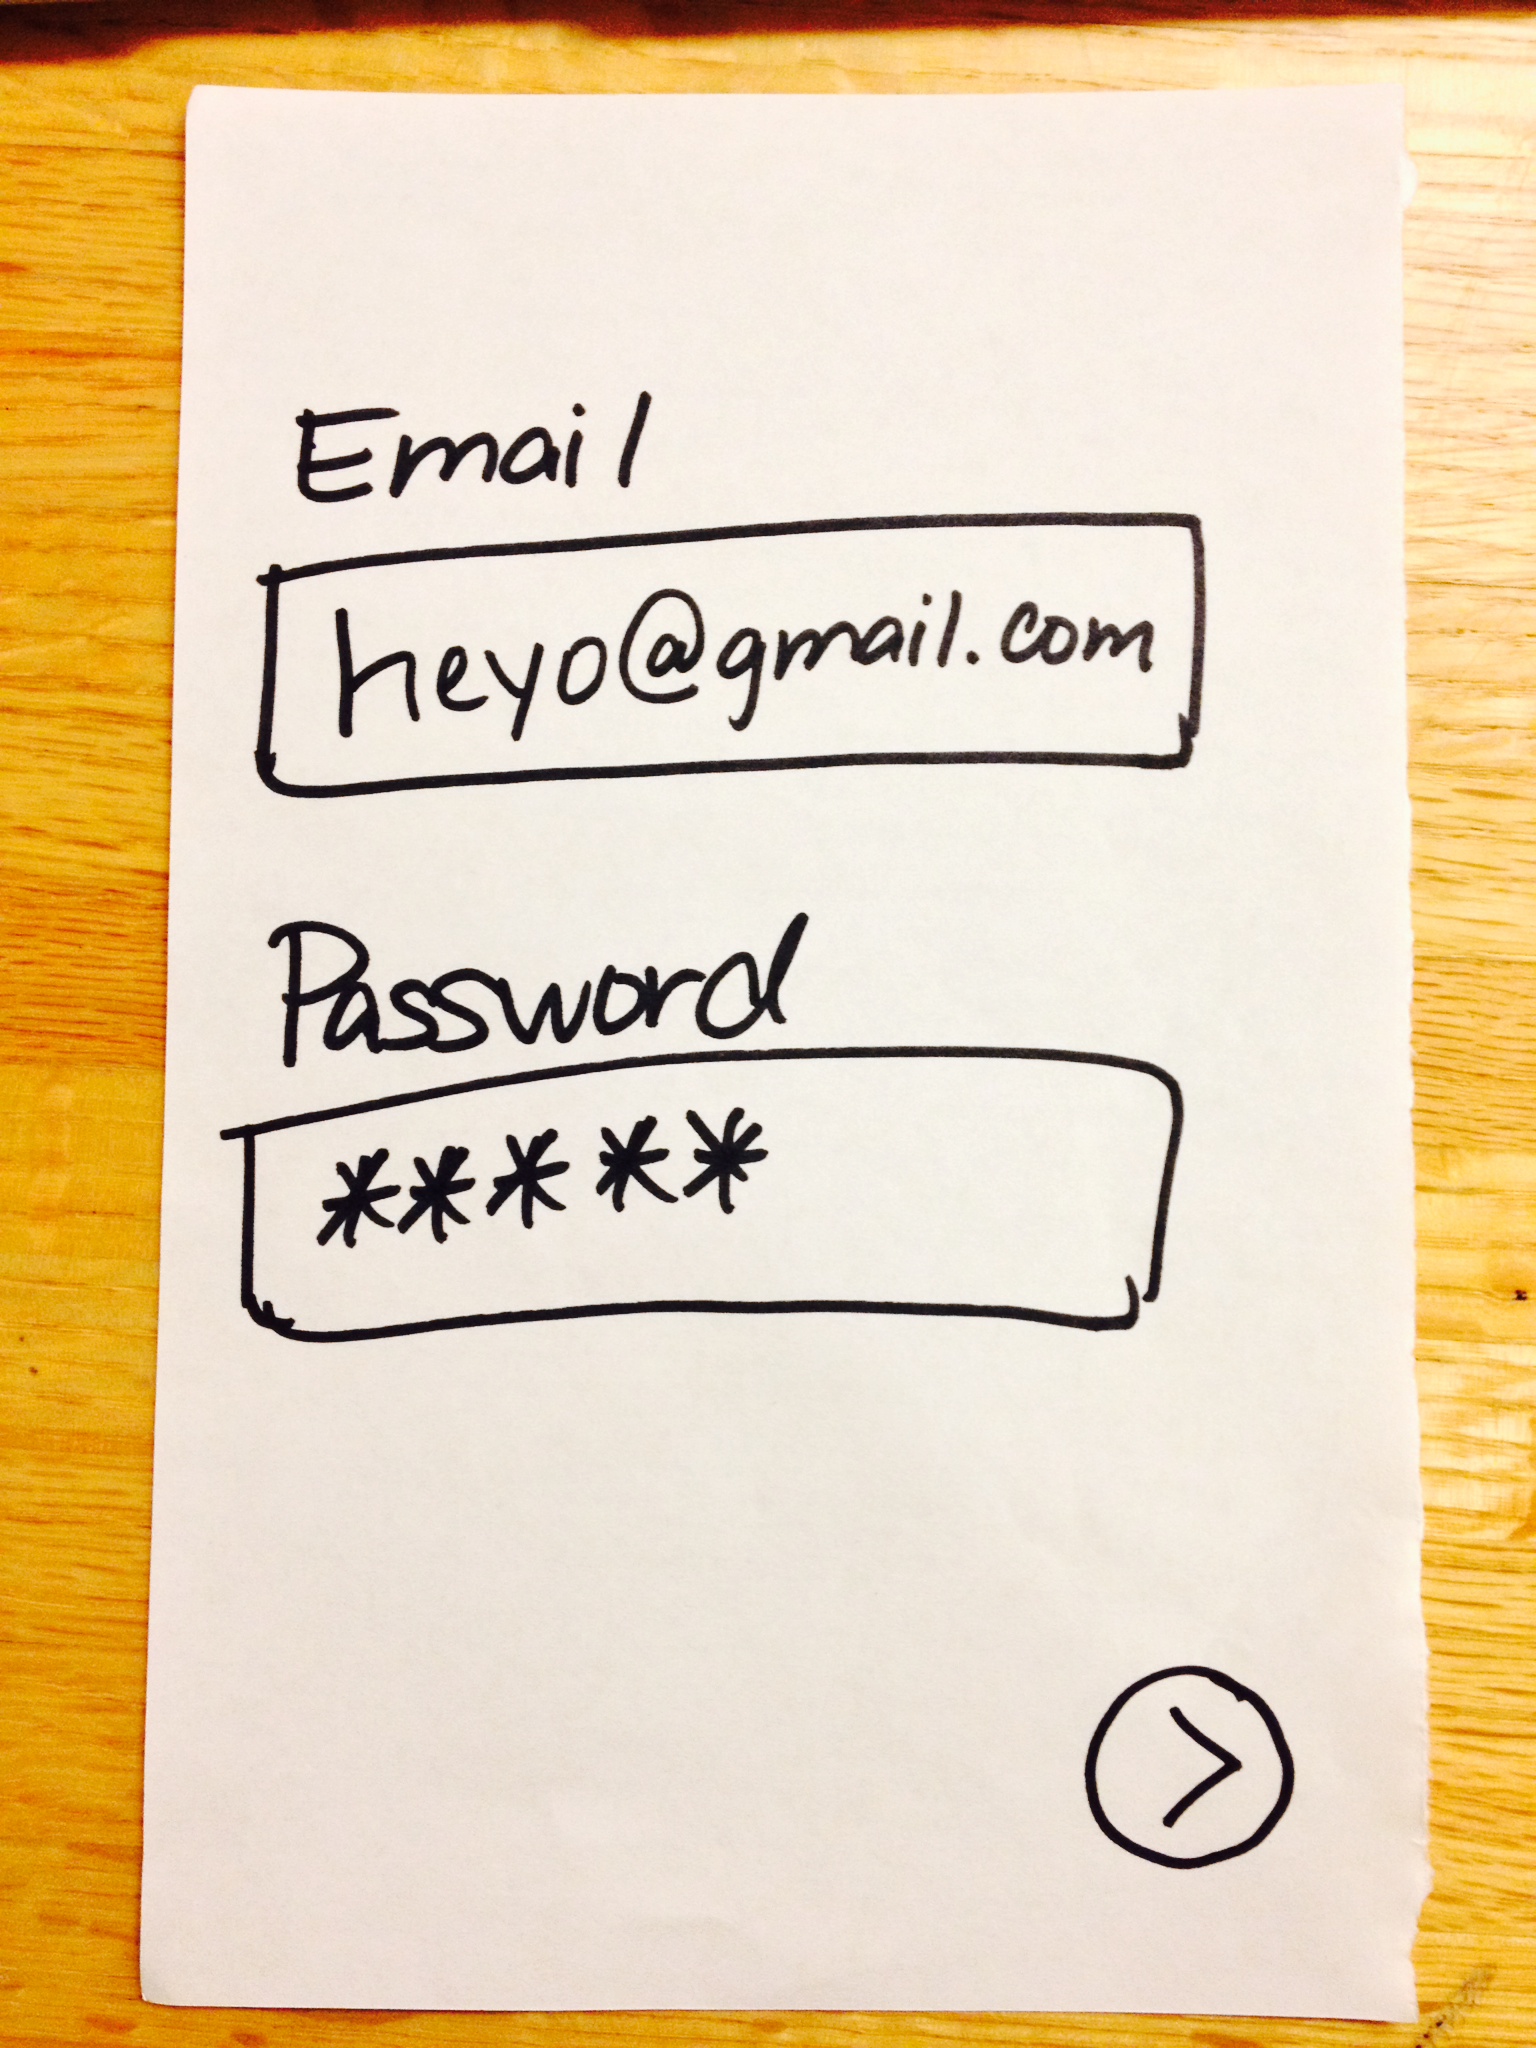 Email
heyo@gmail.com
Password
*****
>